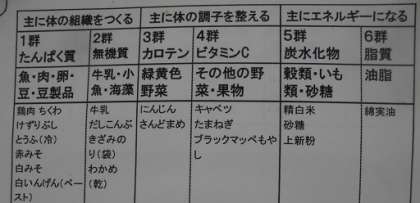 主に体の組織をつくる 主に体の調子を整える 主にエネルギーになる
1群 2群 3群 4群 5群 6群
たんぱく質 無機質 カロテン ビタミンC 炭水化物 脂質
魚・肉・卵・ 牛乳・小 緑黄色 その他の野 穀類・いも 油脂
豆・豆製品 魚・海藻 野菜 菜・果物 類・砂糖
鶏肉 ちくわ 牛乳 にんじん キャベツ 精白米 綿実油
けずりぶし だしこんぶ さんどまめ たまねぎ 砂糖
とうふ(冷) きざみの ブラックマッペもや 上新粉
赤みそ り(袋) し
白みそ わかめ
白いんげん(ペー (乾)
スト)